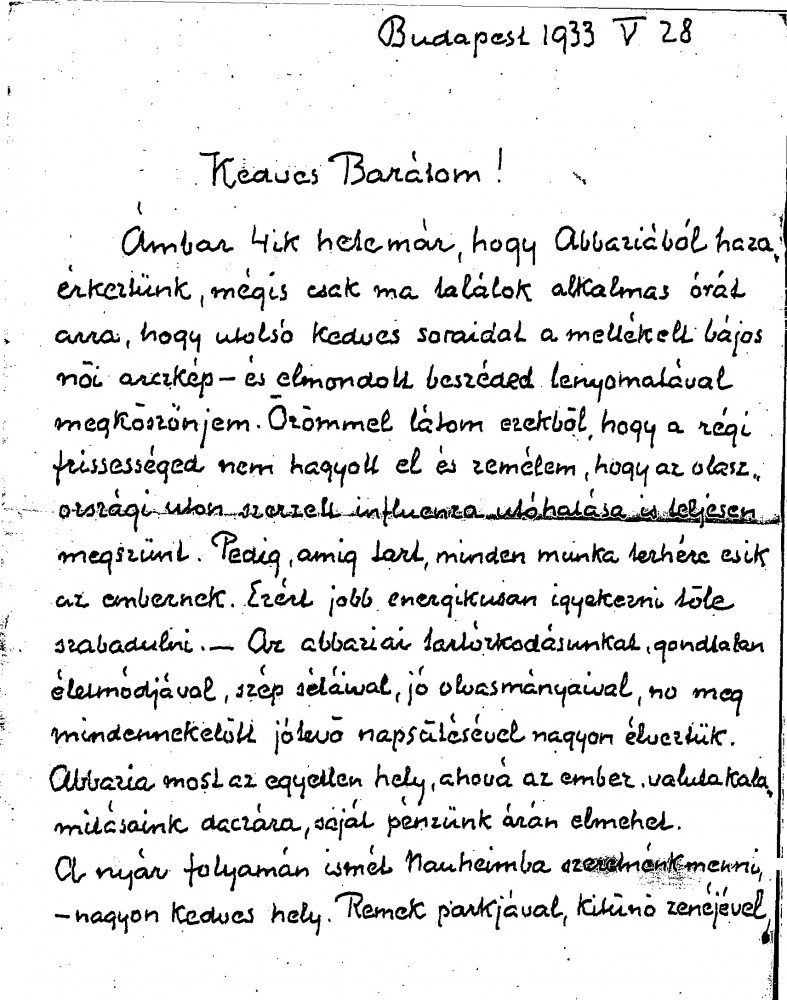 Budapest 1933 V 28
Kedves Barátom!
Ámbár 4ik hete már, hogy Abbaziából haza„
érkeztünk, mégis csak ma találok alkalmas órát
arra, hogy utolsó kedves soraidat a mellékelt bájos
női arczkép – és elmondott beszéded lenyomatával
megköszönjem. Örömmel látom ezekből, hogy a régi
frissességed nem hagyott el és remélem, hogy az olasz„
országi uton szerzett influenza utóhatása is teljesen
megszünt. Pedig, amig tart, minden munka terhére esik
az embernek. Ezért jobb energikusan igyekezni tőle
szabadulni. – Az abbaziai tartózkodásunkat, gondtalan
életmódjával, szép sétáival, jó olvasmányaival, no meg
mindennekelőtt jótevő napsütésével nagyon élveztük.
Abbazia most az egyetlen hely, ahová az ember, valutakala„
mitásaink daczára, saját pénzünk árán elmehet.
A nyár folyamán ismét Nauheimba szeretnénk menni,
– nagyon kedves hely. Remek parkjával, kitünő zenéjével,